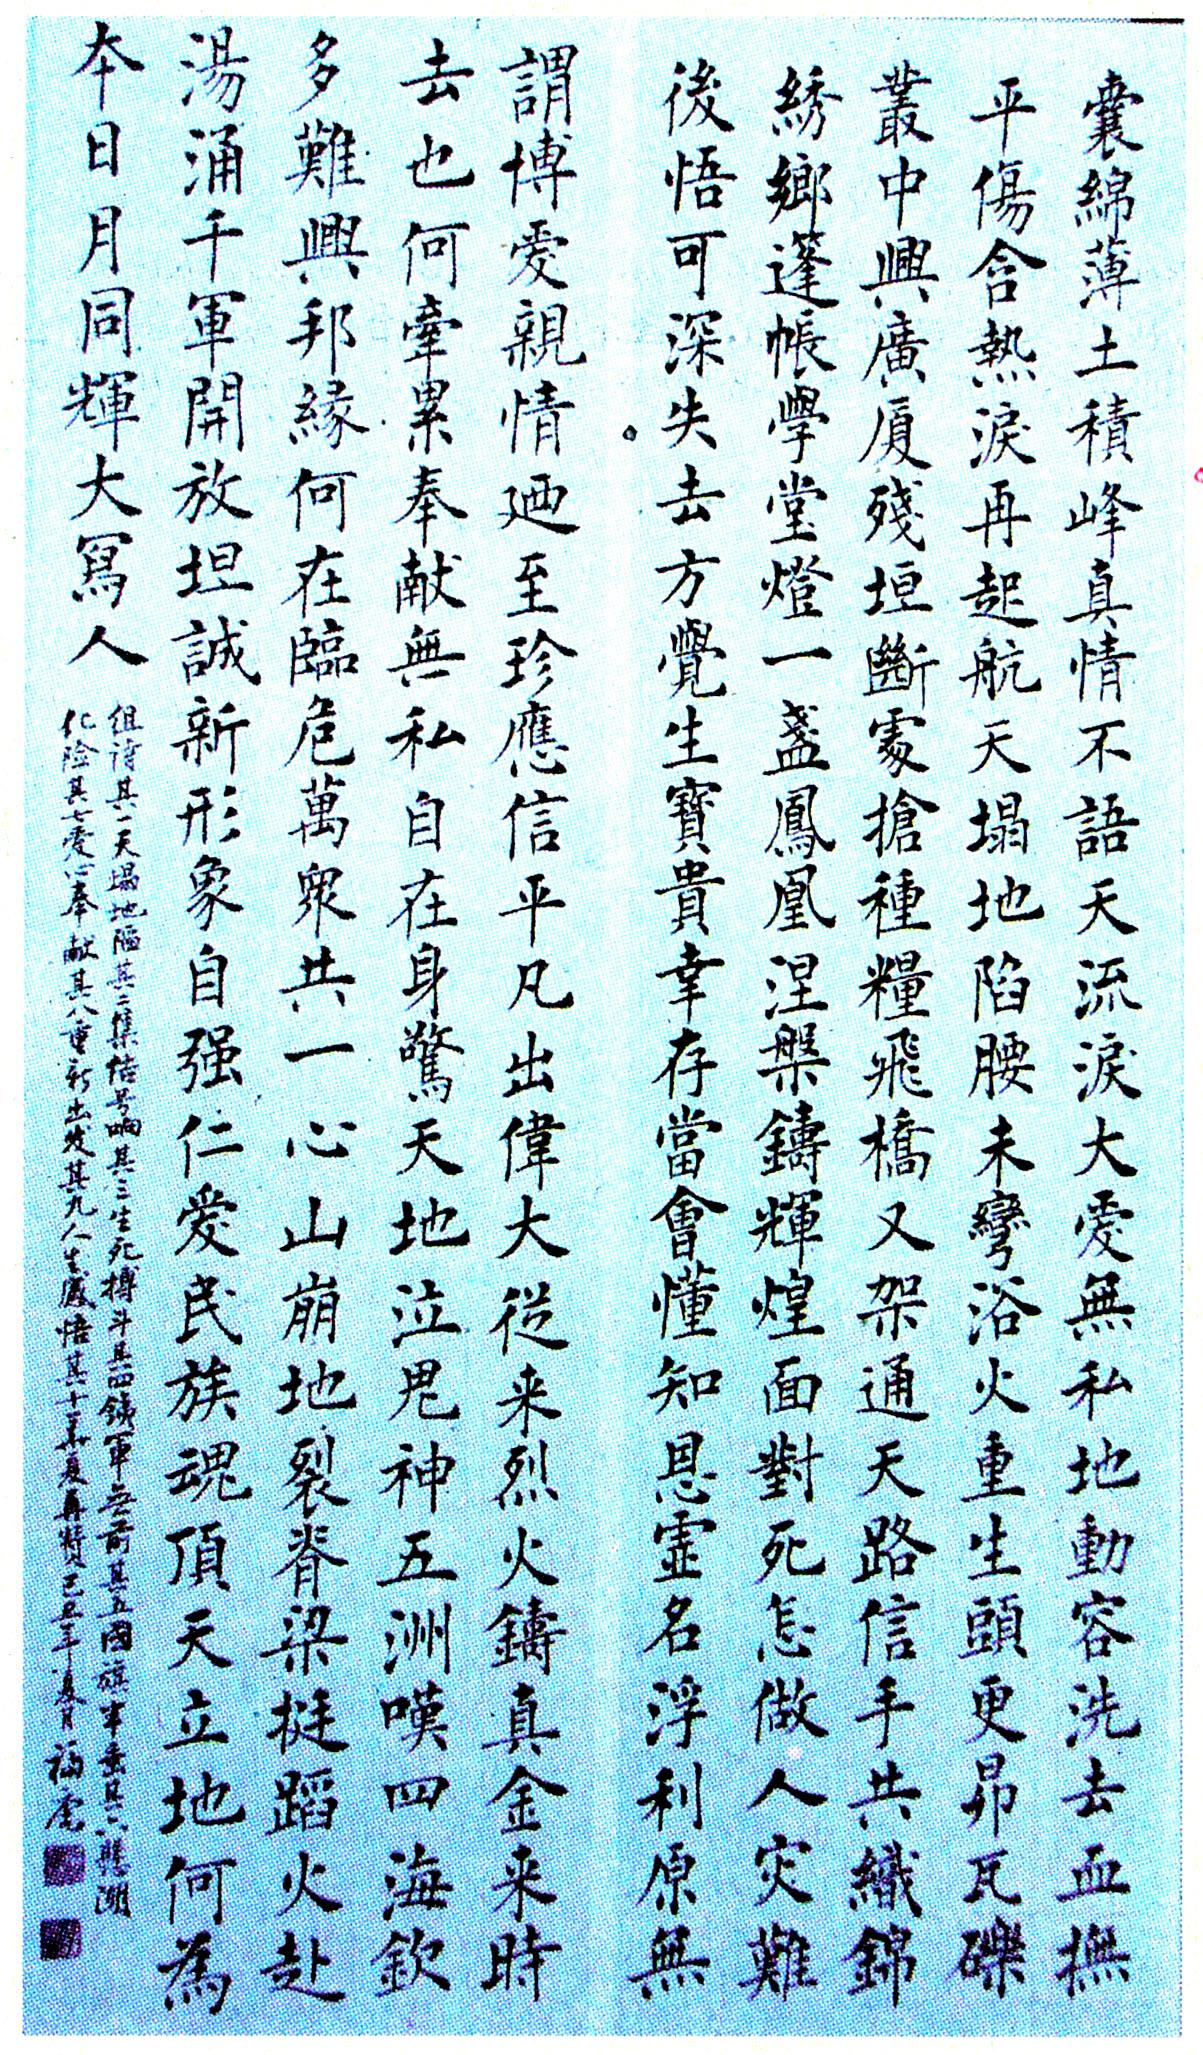 囊綿薄土積峰真情不語天流淚大愛無私地動容洗去血撫
平傷含熱淚再起航天塌地陷腰未彎浴火重生頭更昂瓦礫
叢中興廣廈殘垣斷處搶種糧飛橋又架通天路信手共織錦
綉鄉蓬帳學堂燈一盞鳳凰涅槃鑄輝煌面對死怎做人灾難
後悟可深失去方覺生寶貴幸存當會懂知恩虛名浮利原無
謂博愛親情廼至珍應信平凡出偉大從来烈火鑄真金来時
去也何牽累奉献無私自在身驚天地泣鬼神五洲嘆四海欽
多難興邦緣何在臨危萬衆共一心山崩地裂脊梁挺蹈火赴
湯涌千軍開放坦誠新形象自强仁愛民族魂頂天立地何為
本日月同輝大寫人
组诗其一天塌地陷其二集结号响其三生死搏斗其四铁軍无前其五國旗半垂其六懸湖
化险其七爱心奉献其八重新出发其九人生感悟其十華夏再赞己丑年夏月福常